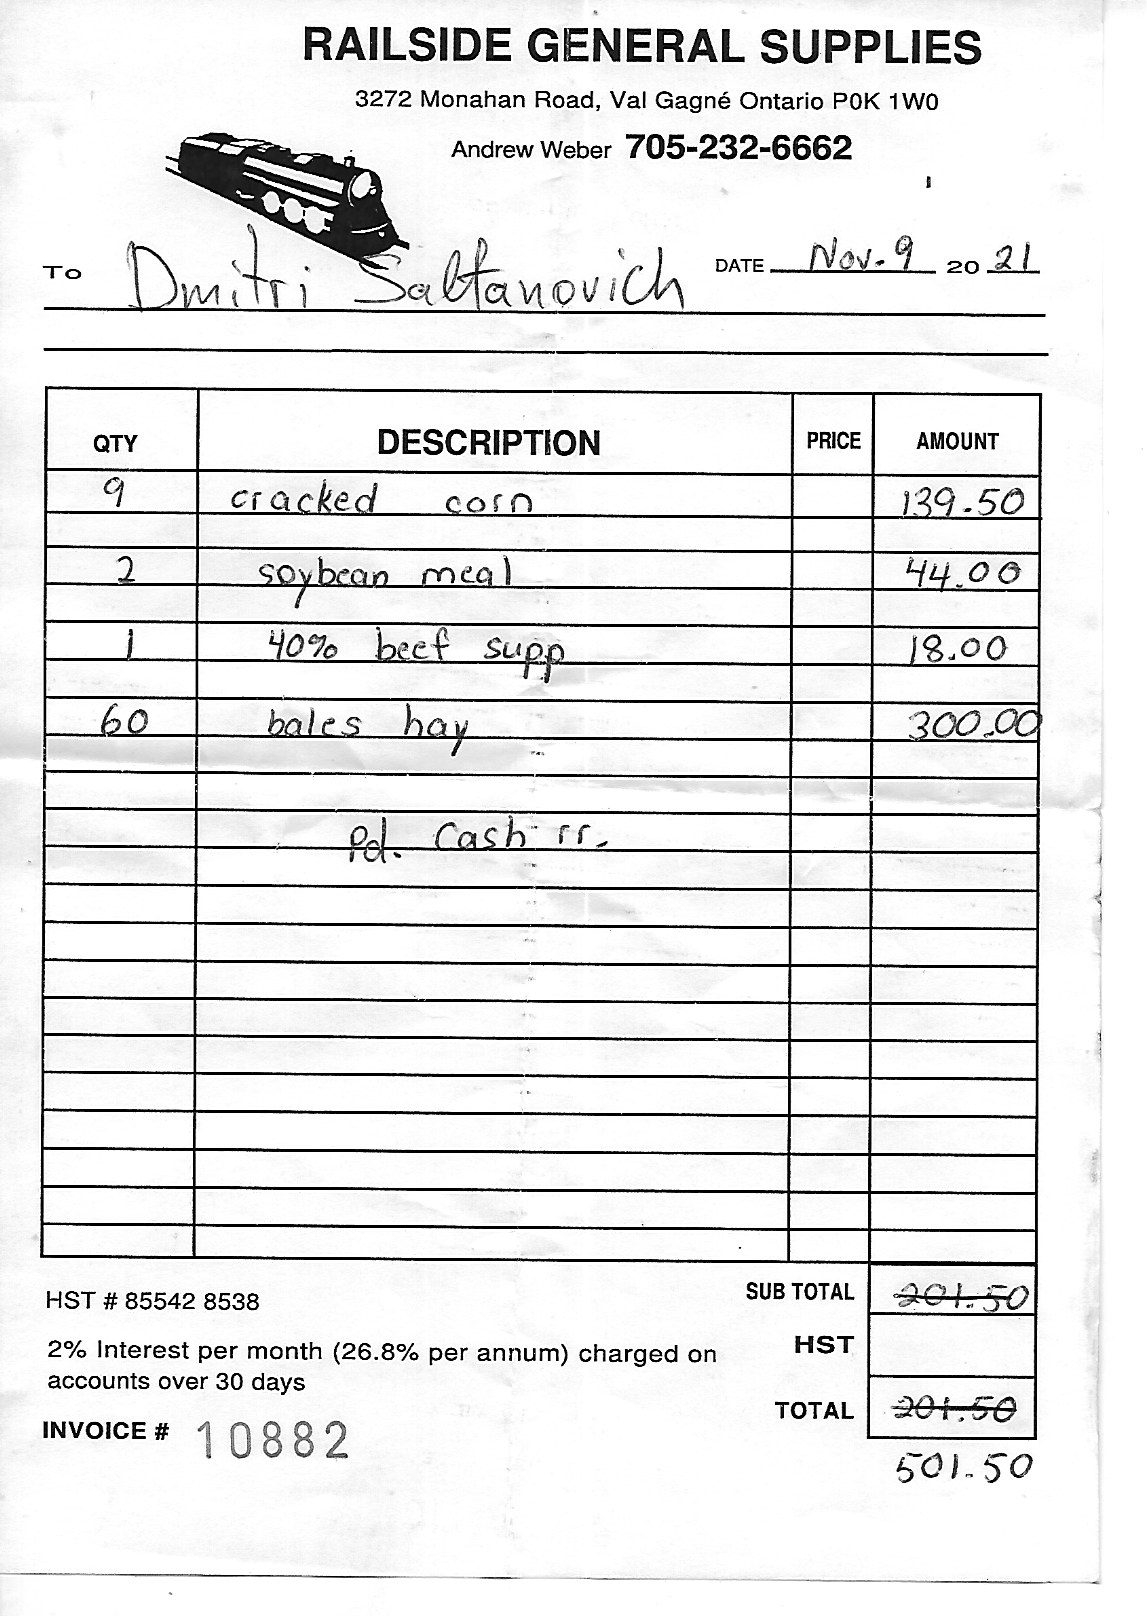 RAILSIDE GENERAL SUPPLIES
3272 Monahan Road, Val Gagné Ontario P0K 1W0
Andrew Weber 705-232-6662
TO Dmitri Saltanovich DATE Nov. 9 20 21
QTY DESCRIPTION PRICE AMOUNT
9 cracked corn 139.50
2 soybean meal 44.00
1 40% beef supp 18.00
60 bales hay 300.00
Pd. Cash rr.
HST # 85542 8538 SUB TOTAL 201.50
2% Interest per month (26.8% per annum) charged on HST
accounts over 30 days
INVOICE # 10882 TOTAL 201.50
501.50